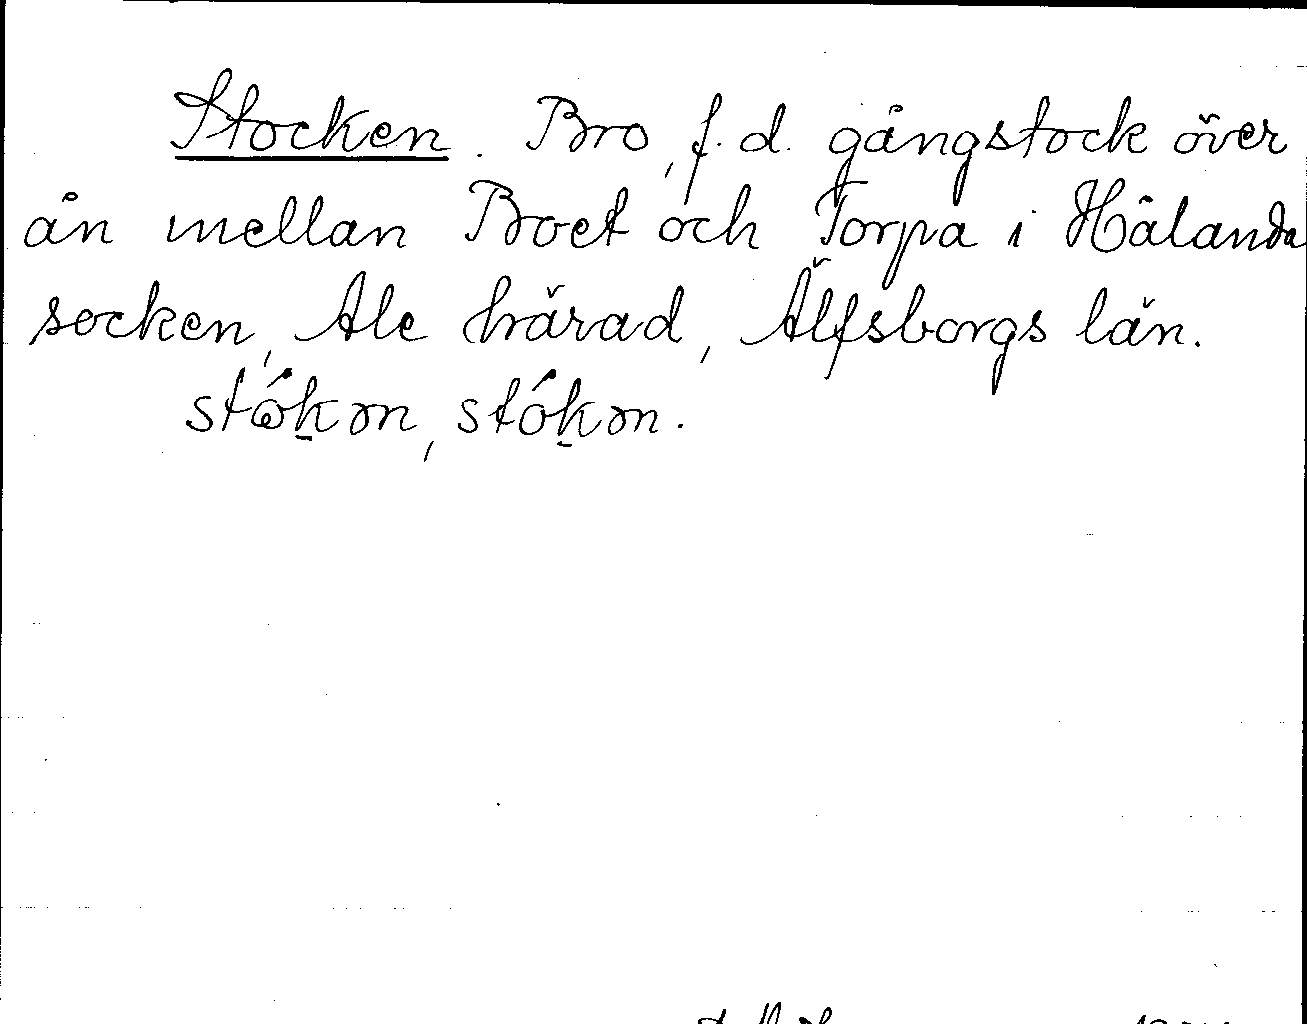 Stocken. Bro, f.d. gångstock över
ån mellan Broet och Torpa i Hålanda
socken, Ale härad, Älfsborgs län.